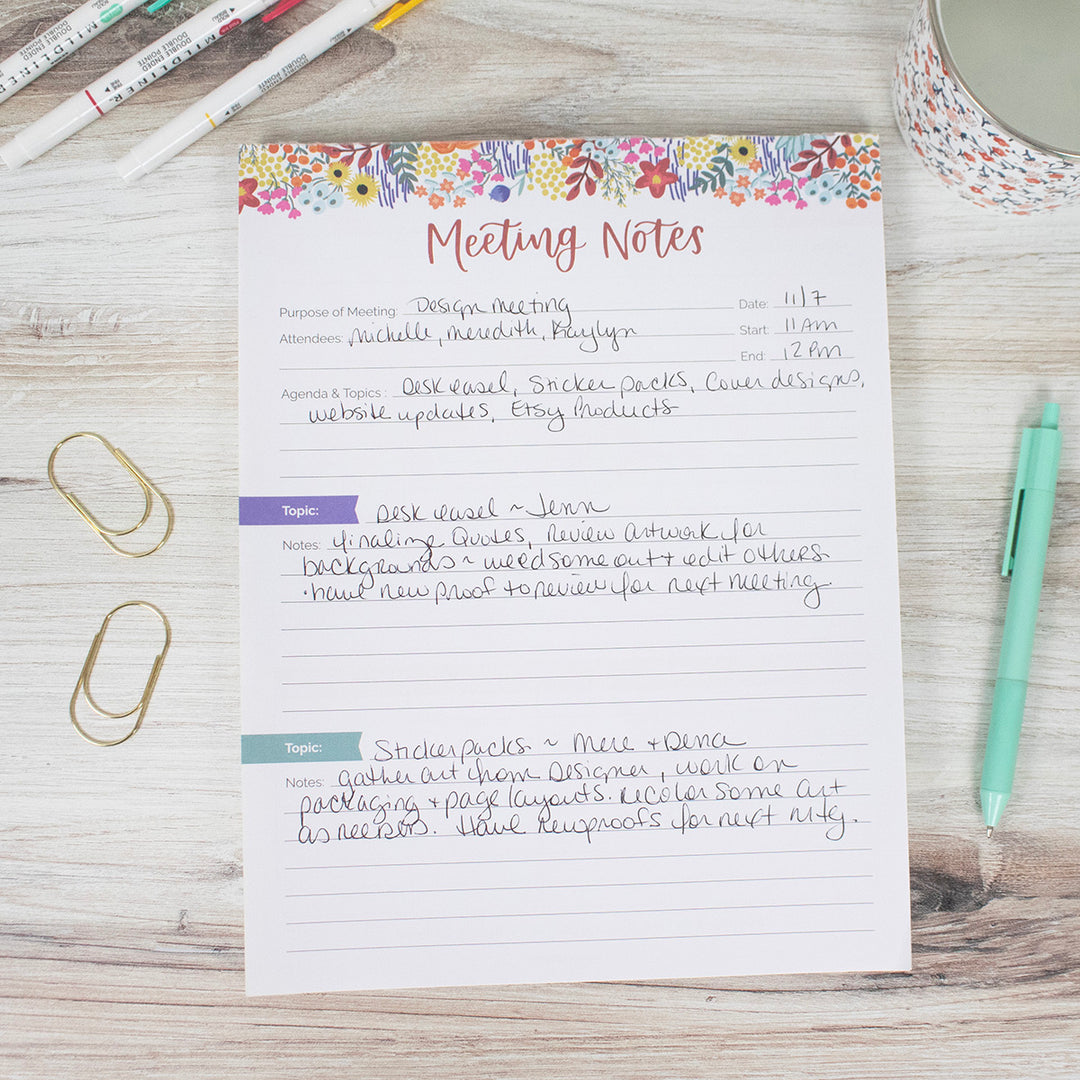 MILDLINER
DOUBLE ENDED
DOUBLE POINTE
MILDLINER
DOUBLE ENDED
DOUBLE POINTE
MILDLINER
DOUBLE ENDED
DOUBLE POINTE
Meeting Notes
Purpose of Meeting: Design Meeting Date: 11/7
Attendees: Michelle, Meredith, Kaylyn Start: 11 AM
End: 12 PM
Agenda & Topics: Desk easel, Sticker packs, Cover designs,
website updates, Etsy Products
Topic: Desk easel ~ Jenn
Notes: finalize Quotes, Review Artwork for
backgrounds ~ weed some out + edit others
· have new proof to review for next meeting.
Topic: Sticker packs ~ Mere + Dena
Notes: gather art from Designer, work on
packaging + page layouts. recolor some art
as needed. Have new proofs for next mtg.